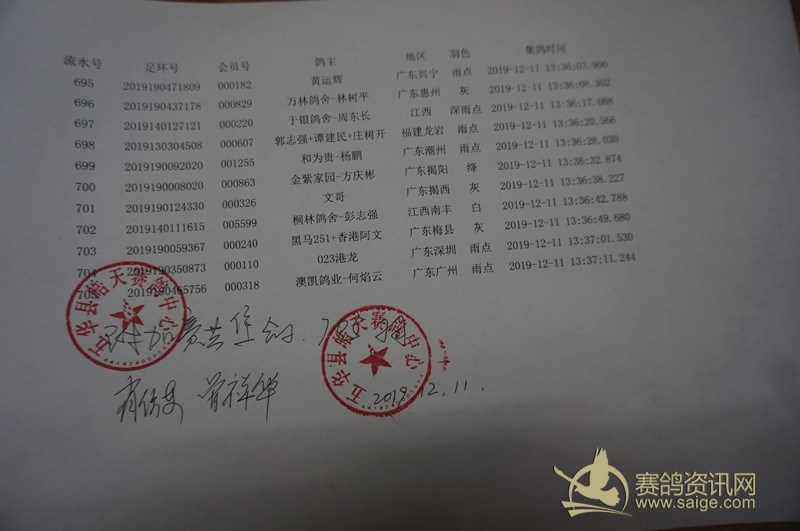 流水号 足环号 会员号 鸽主 地区 羽色 集鸽时间
695 2019190471809 000182 黄运辉 广东兴宁 雨点 2019-12-11 13:36:03.900
696 2019190437178 000829 万林鸽舍-林树平 广东惠州 灰 2019-12-11 13:36:08.302
697 2019140127121 000220 于银鸽舍-周东长 江西 深雨点 2019-12-11 13:36:17.088
698 2019130304508 000607 郭志强+谭建民+庄树开 福建龙岩 雨点 2019-12-11 13:36:20.566
699 2019190092020 001255 和为贵-杨鹏 广东潮州 雨点 2019-12-11 13:36:28.030
700 2019190008020 000863 金紫家园-方庆彬 广东揭阳 绛 2019-12-11 13:36:32.874
701 2019190124330 000326 文哥 广东揭西 灰 2019-12-11 13:36:38.227
702 2019140111615 005599 桐林鸽舍-彭志强 江西南丰 白 2019-12-11 13:36:42.788
703 2019190059367 000240 黑马251+香港阿文 广东梅县 灰 2019-12-11 13:36:49.680
704 2019190350873 000110 023港龙 广东深圳 雨点 2019-12-11 13:37:01.530
705 2019190465756 000318 澳凯鸽业-何焰云 广东广州 雨点 2019-12-11 13:37:11.244
五华县皓天赛鸽中心
五华县皓天赛鸽中心
2019.12.11.
赛鸽资讯网
www.saige.com